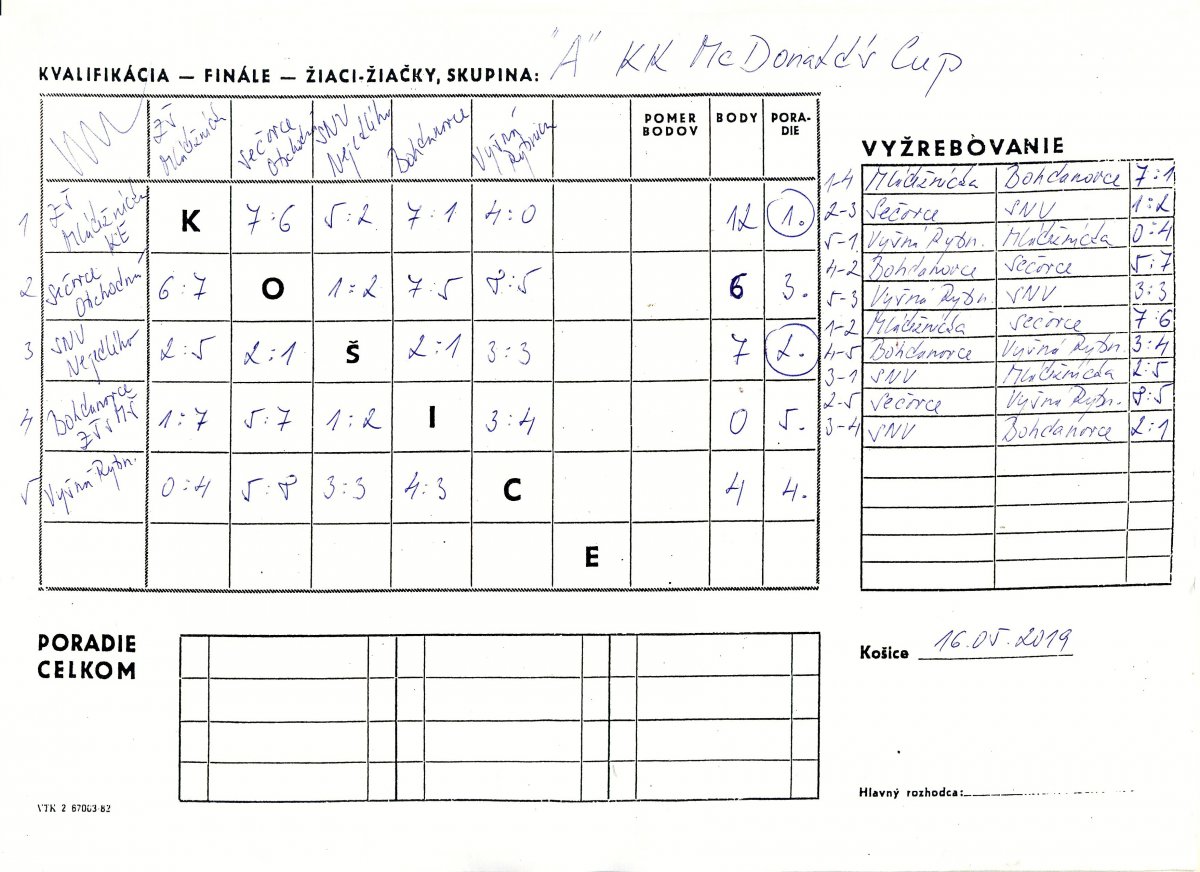 "A" KK McDonald's Cup
KVALIFIKÁCIA — FINÁLE — ŽIACI-ŽIAČKY, SKUPINA:
ZŠ Mládežnícka
Sečovce Obchodná
SNV Nejedlého
Bohdanovce
Vyšná Rybnica
POMER BODOV
BODY
PORA-DIE
1 ZŠ Mládežnícka KE K 7:6 5:2 7:1 4:0 12 1.
2 Sečovce Obchodná 6:7 O 1:2 7:5 8:5 6 3.
3 SNV Nejedlého 2:5 2:1 Š 2:1 3:3 7 2.
4 Bohdanovce ZŠ s MŠ 1:7 5:7 1:2 I 3:4 0 5.
5 Vyšná Rybn. 0:4 5:8 3:3 4:3 C 4 4.
E
VYŽREBOVANIE
1-4 Mládežnícka Bohdanovce 7:1
2-3 Sečovce SNV 1:2
5-1 Vyšná Rybn. Mládežnícka 0:4
4-2 Bohdanovce Sečovce 5:7
5-3 Vyšná Rybn. SNV 3:3
1-2 Mládežnícka Sečovce 7:6
4-5 Bohdanovce Vyšná Rybn. 3:4
3-1 SNV Mládežnícka 2:5
2-5 Sečovce Vyšná Rybn. 8:5
3-4 SNV Bohdanovce 2:1
PORADIE
CELKOM
Košice 16.05.2019
Hlavný rozhodca:
VTK 2 67003-82